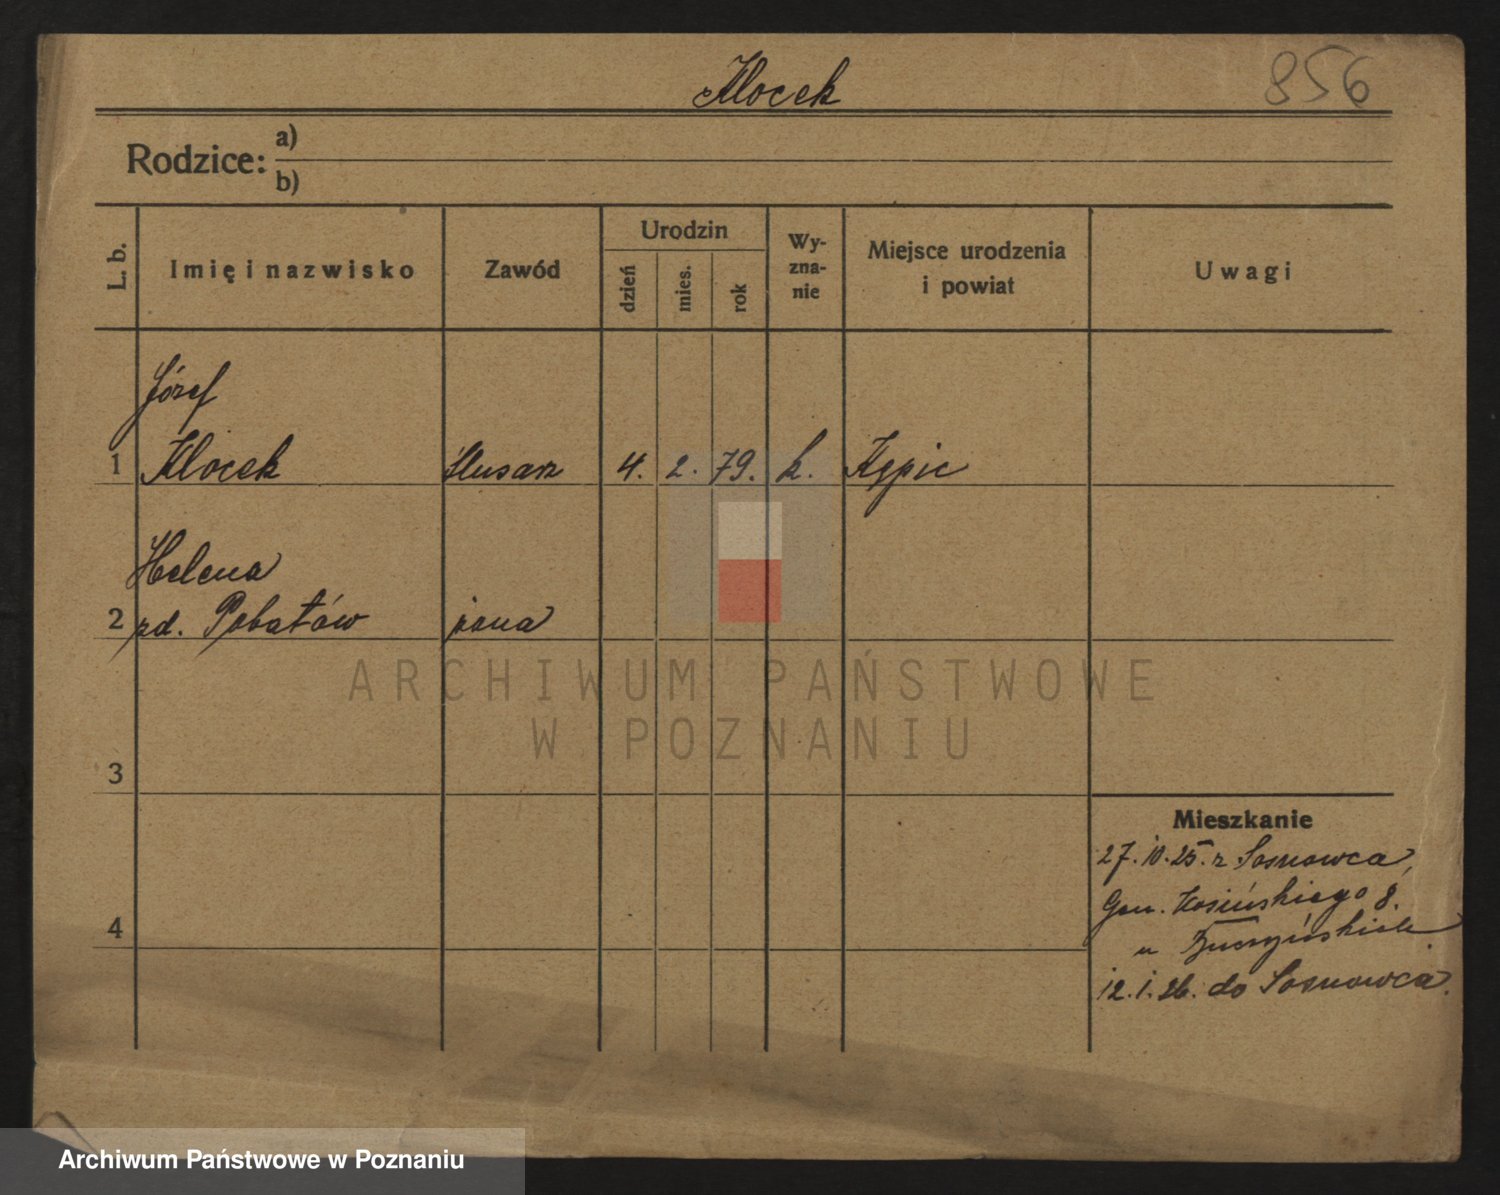 Klocek
856
Rodzice: a)
b)
L. b.
Imię i nazwisko
Zawód
Urodzin
dzień
mies.
rok
Wy-
zna-
nie
Miejsce urodzenia
i powiat
Uwagi
Józef
1 Klocek ślusarz 4. 2. 79. k. Kępie
Helena
2 zd. Pobatów żona
3
4
Mieszkanie
27.10.25. z Sosnowca,
Gen. Kosińskiego 8.
u
12.1.26. do Sosnowca.
ARCHIWUM PAŃSTWOWE
W POZNANIU
Archiwum Państwowe w Poznaniu